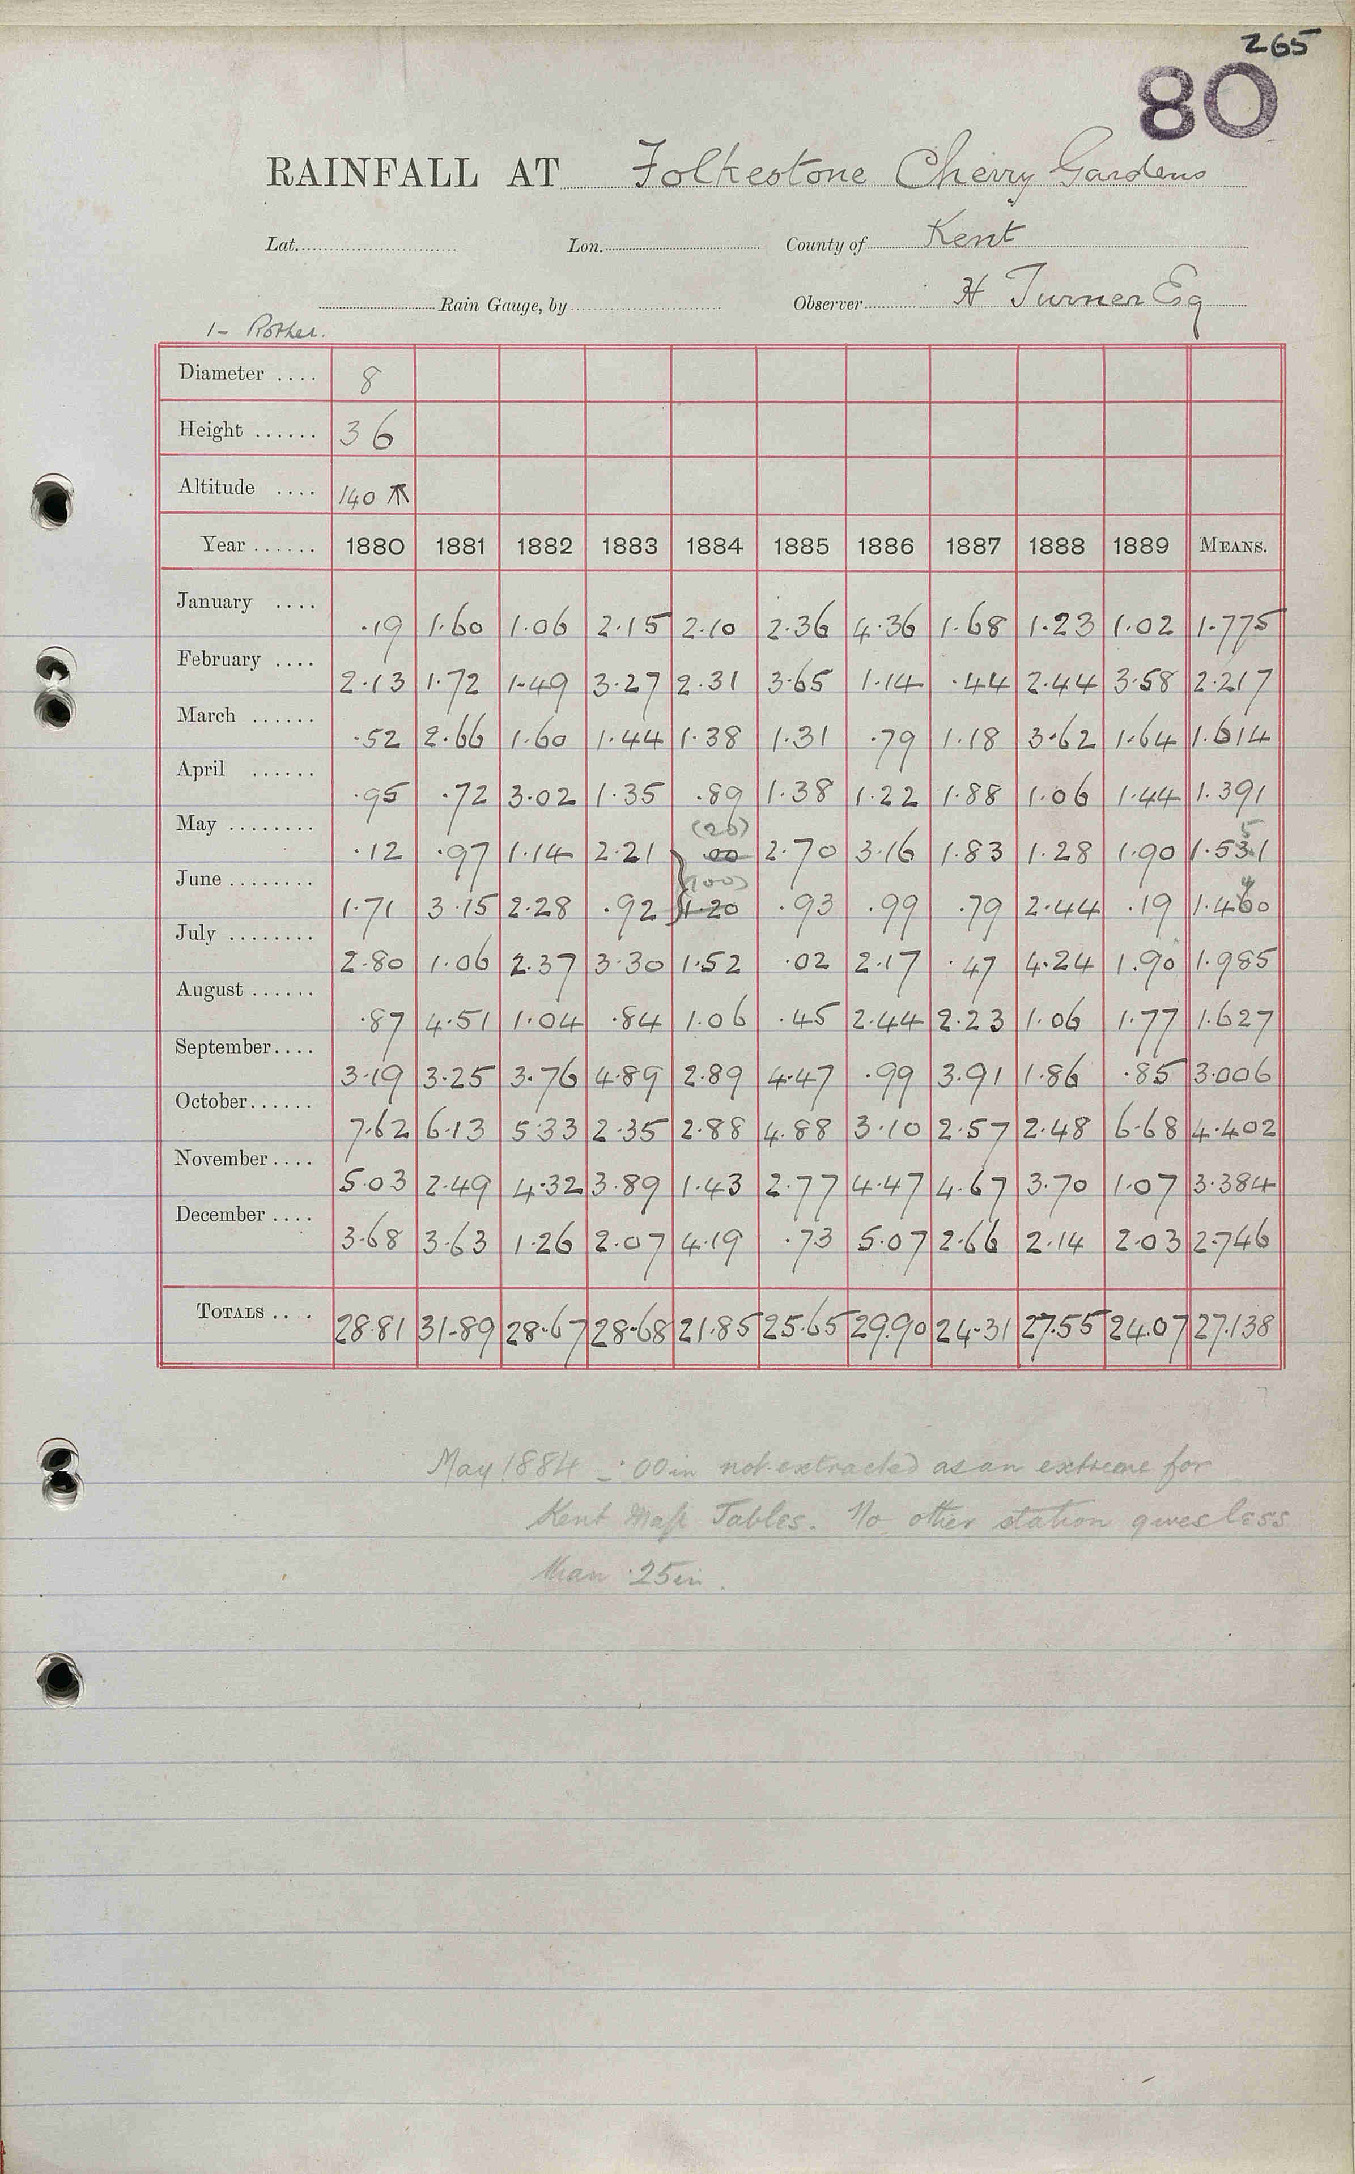 265
80
RAINFALL AT Folkestone Cherry Gardens
Lat. Lon. County of Kent
Rain Gauge, by Observer H Turner Esq
1- Rother.
Diameter .... 8
Height ...... 36
Altitude .... 140 ↖
Year ...... 1880 1881 1882 1883 1884 1885 1886 1887 1888 1889 MEANS.
January .... .19 1.60 1.06 2.15 2.10 2.36 4.36 1.68 1.23 1.02 1.775
February .... 2.13 1.72 1.49 3.27 2.31 3.65 1.14 .44 2.44 3.58 2.217
March ...... .52 2.66 1.60 1.44 1.38 1.31 .79 1.18 3.62 1.64 1.614
April ...... .95 .72 3.02 1.35 .89 1.38 1.22 1.88 1.06 1.44 1.391
(20) 5
May ........ .12 .97 1.14 2.21 .00 2.70 3.16 1.83 1.28 1.90 1.531
(100) 4
June ........ 1.71 3.15 2.28 .92 1.20 .93 .99 .79 2.44 .19 1.460
July ........ 2.80 1.06 2.37 3.30 1.52 .02 2.17 .47 4.24 1.90 1.985
August ...... .87 4.51 1.04 .84 1.06 .45 2.44 2.23 1.06 1.77 1.627
September.... 3.19 3.25 3.76 4.89 2.89 4.47 .99 3.91 1.86 .85 3.006
October...... 7.62 6.13 5.33 2.35 2.88 4.88 3.10 2.57 2.48 6.68 4.402
November .... 5.03 2.49 4.32 3.89 1.43 2.77 4.47 4.67 3.70 1.07 3.384
December .... 3.68 3.63 1.26 2.07 4.19 .73 5.07 2.66 2.14 2.03 2.746
TOTALS .... 28.81 31.89 28.67 28.68 21.85 25.65 29.90 24.31 27.55 24.07 27.138
May 1884 - .00in not extracted as an extreme for
Kent Tables. No other station gives less
than .25in.